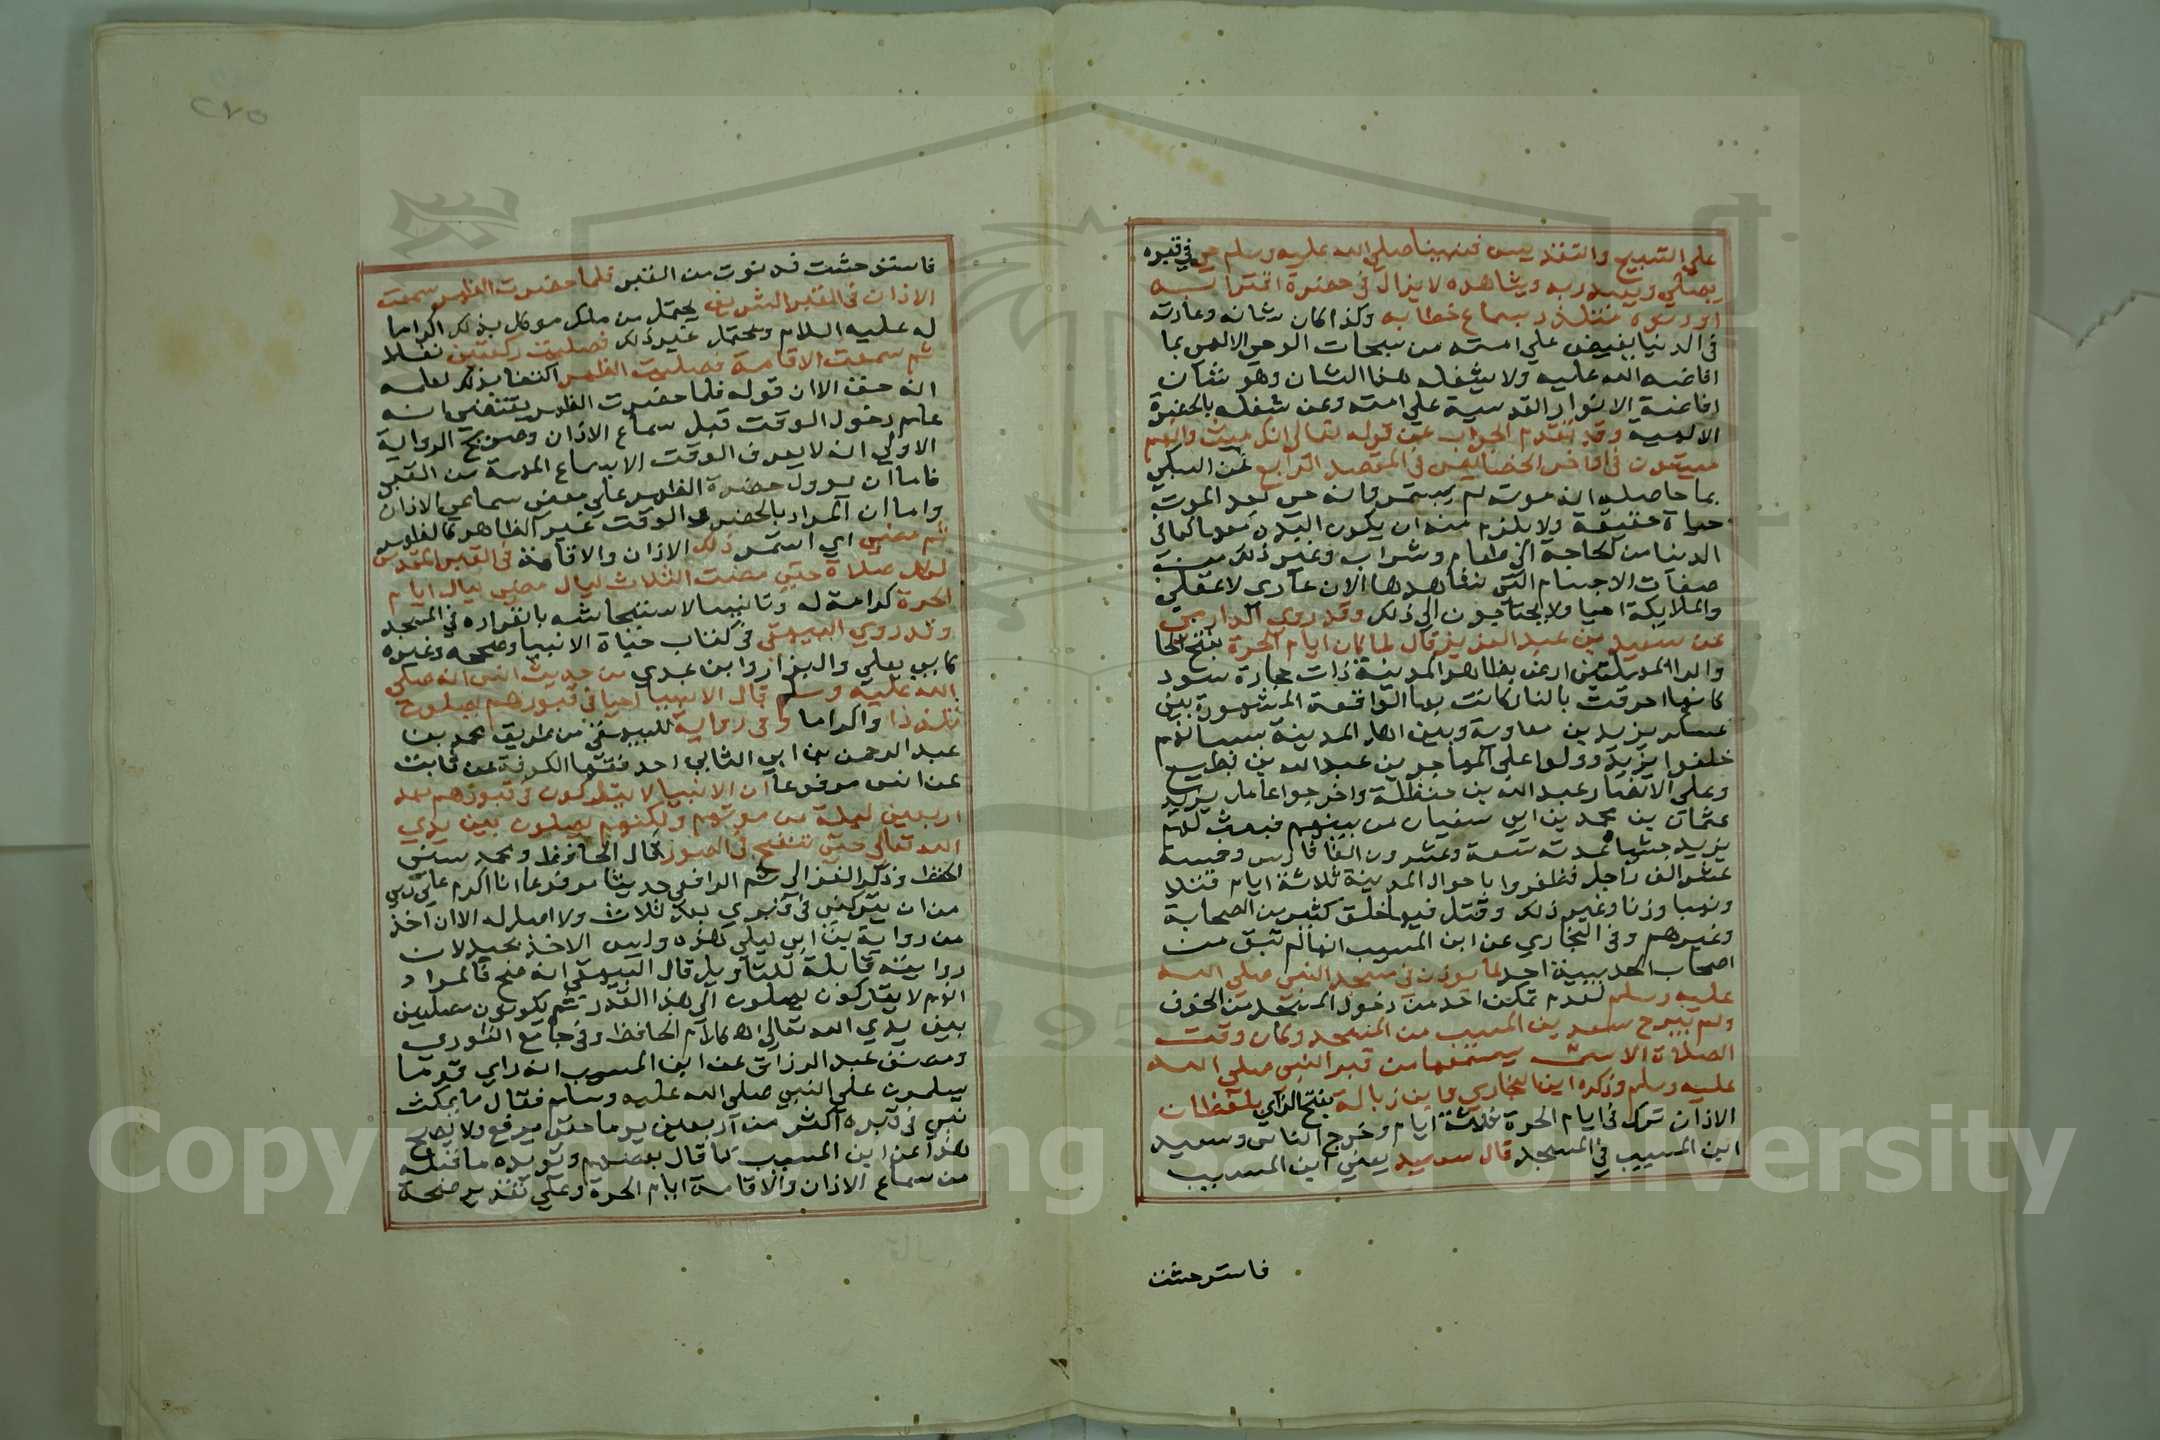 على التسبيح والتقديس فنبينا صلى الله عليه وسلم حي في قبره
يصلي ويعبد ربه ويشاهده لا يزال في حضرة اقترابه
متلذذ بسماع خطابه وكذا كان شانه وعادته
في الدنيا يفيض على امته من سبحات الوحي الالهي بما
افاضه الله عليه ولا يشغله هذا الشان وهو شان
افاضة الانوار القدسية على امته وعن شغله بالحضرة
الالهية وقد تقدم الجواب عن قوله تعالى انك ميت وانهم
ميتون في اواخر الخصايص في المقصد الرابع عن السبكي
بما حاصله انه موت لم يستمر وانه حي بعد الموت
حياة حقيقة ولا يلزم منه ان يكون البدن معها كما في
الدنيا من الحاجة الى طعام وشراب وغير ذلك من
صفات الاجسام التي نشاهدها الان عادي لا عقلي
والملايكة احيا ولا يحتاجون الى ذلك وقد روى الدارمي
عن سعيد بن عبد العزيز قال لما كان ايام الحرة بفتح الحا
والرا المهملتين ارض بظاهر المدينة ذات حجارة سود
كانها احرقت بالنار كانت بها الواقعة المشهورة بين
عسكر يزيد بن معاوية وبين اهل المدينة بسبب انهم
خلعوا يزيد وولوا على المهاجرين عبد الله بن مطيع
وعلى الانصار عبد الله بن حنظلة واخرجوا عامل يزيد
عثمان بن محمد بن ابي سفيان من بينهم فبعث لهم
يزيد جيشا عدته سبعة وعشرون الفا فارس وخمسة
عشر الف راجل فظفروا باهل المدينة ثلاثة ايام قتلا
ونهبا وزنا وغير ذلك وقتل فيها خلق كثير من الصحابة
وغيرهم وفي البخاري عن ابن المسيب انها لم تبق من
اصحاب الحديبية احد لم يوذن في مسجد النبي صلى الله
عليه وسلم لعدم تمكن احد من دخول المسجد من الخوف
ولم يبرح سعيد بن المسيب من المسجد وكان وقت
الصلاة الا سمعه يسمعها من قبر النبي صلى الله
عليه وسلم وذكره ابن النجاري وابن زبالة بفتح الزاي بلفظ ان
الاذان ترك في ايام الحرة ثلاثة ايام وخرج الناس وسعيد
ابن المسيب في المسجد قال سعيد يعني ابن المسيب
فاستوحشت
فاستوحشت فدنوت من القبر فلما حضرت الظهر سمعت
الاذان في القبر الشريف يحتمل من ملك موكل بذلك اكراما
له عليه السلام ويحتمل غير ذلك فصليت ركعتين نقلا
ثم سمعت الاقامة فصليت الظهر اكتفا بذلك لعلمه
انه حق الا ان قوله فلما حضرت الظهر يقتضي انه
علم دخول الوقت قبل سماع الاذان وصريح الرواية
الاولى انه لا يعرف الوقت الا بسماع الهمسة من القبر
فاما ان يوول حضرة الظهر على معنى سماعي الاذان
واما ان المراد بالحضور الوقت غير الظاهر كالظهر
ثم مضى اي استمر ذلك الاذان والاقامة في القبر المقدس
لكل صلاة حتى مضت الثلاث ليال معنى ليال ايام
الحرة كرامة له وتانيسا لاستيحاشه بانفراده في المسجد
وقد روى البيهقي في كتاب حياة الانبيا وصححه وغيره
كابي يعلى والبزار وابن عدي من حديث انس انه صلى
الله عليه وسلم قال الانبيا احيا في قبورهم يصلون
تلذذا واكراما وفي رواية للبيهقي من طريق محمد بن
عبد الرحمن بن ابي ليلى احد فقها الكوفة عن ثابت
عن انس مرفوعا ان الانبيا لا يتركون في قبورهم بعد
اربعين ليلة من موتهم ولكنهم يصلون بين يدي
الله تعالى حتى ينفخ في الصور قال الحافظ ومحمد سيئ
الحفظ وذكر الغزالي ثم الرافعي حديثا مرفوعا انا اكرم على ربي
من ان يتركني في قبري بعد ثلاث ولا اصل له الا ان اخذ
من رواية بن ابي ليلى هذه وليس الاخذ بجيد لان
روايته قابلة للتاويل قال البيهقي ان صح فالمراد
انهم لا يتركون يصلون الى هذا القدر ثم يكونون مصلين
بين يدي الله تعالى اه كلام الحافظ وفي جامع الثوري
ومصنف عبد الرزاق عن ابن المسيب انه راى قوما
يسلمون على النبي صلى الله عليه وسلم فقال ما يمكث
نبي في قبره اكثر من اربعين يوما حتى يرفع ولا يصح
هذا عن ابن المسيب كما قال بعضهم ويويده ما نقله
من سماع الاذان والاقامة ايام الحرة وعلى تقدير صحة
٢٧٥
Copyright © King Saud University
195